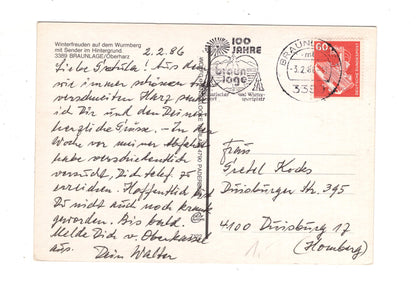 Winterfreuden auf dem Wurmberg
mit Sender im Hintergrund
3389 BRAUNLAGE/Oberharz
2.2.86
Liebe Gretula! Aus dem
wie immer schönen
verschneiten Harz send
ich Dir und den Deinen
herzliche Grüsse. - In der
Woche vor meiner Abfahrt
habe verschiedentlich
versucht, Dich telef. zu
erreichen. Hoffentlich bist
Du nicht auch noch krank
geworden. Bis bald.
Melde Dich v. Oberkassel
aus. Dein Walter
100
JAHRE
braun
lage
BRAUNL
-3.2.86
60
Frau
Gretel Kodes
Duisburger Str. 395
4100 Duisburg 17
(Homberg)
1,-